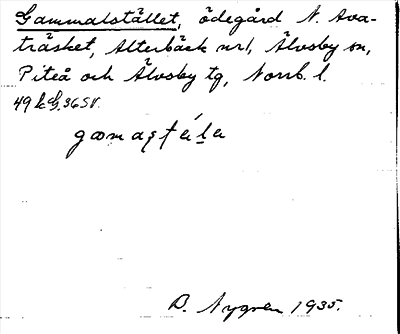 Gammalstället, ödegård N. Ava-
träsket, Alterbäck nr 1, Älvsby sn,
Piteå och Älvsby tg, Norrb. l.
49 k G, 36 SV.
B. Nygren 1935.